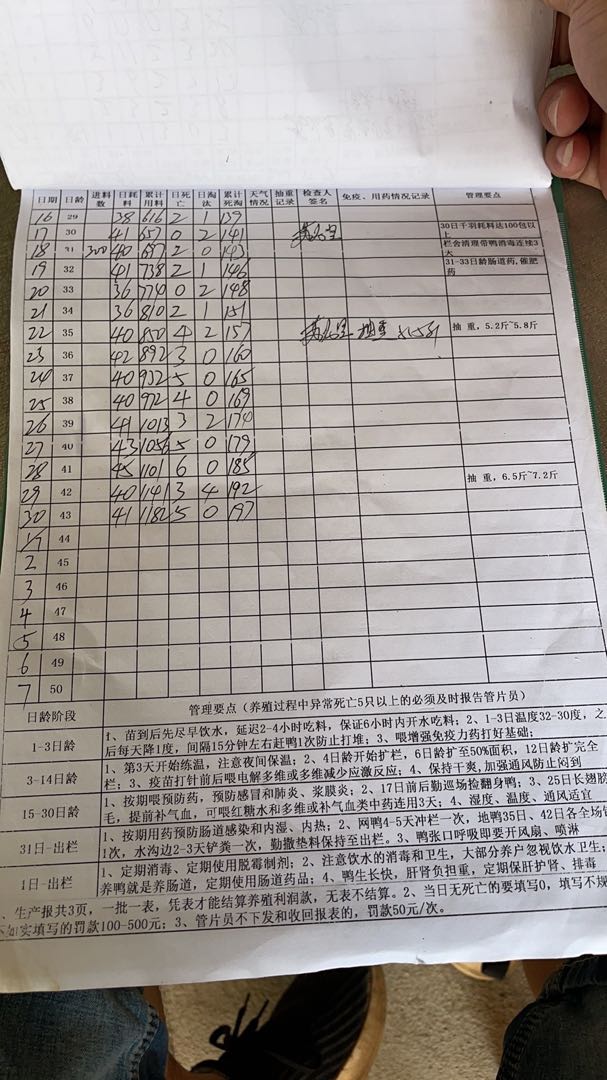 日期 日龄 进料数 日耗料 累计用料 日死亡 日淘汰 累计死淘 天气情况 抽重记录 检查人签名 免疫、用药情况记录 管理要点
16 29 38 616 2 1 139
17 30 41 657 0 2 141 30日千羽耗料达100包以上
18 31 300 40 697 2 0 143 栏舍清理带鸭消毒连续3天
19 32 41 738 2 1 146 31-33日龄肠道药,催肥药
20 33 36 774 0 2 148
21 34 36 810 2 1 151
22 35 40 850 4 2 157 抽重,5.2斤~5.8斤
23 36 42 892 3 0 160
24 37 40 932 5 0 165
25 38 40 972 4 0 169
26 39 41 1013 3 2 174
27 40 43 1056 5 0 179
28 41 45 1101 6 0 185
29 42 40 1141 3 4 192 抽重,6.5斤~7.2斤
30 43 41 1182 5 0 197
1/7 44
2 45
3 46
4 47
5 48
6 49
7 50
日龄阶段 管理要点(养殖过程中异常死亡5只以上的必须及时报告管片员)
1-3日龄 1、苗到后先尽早饮水,延迟2-4小时吃料,保证6小时内开水吃料;2、1-3日温度32-30度,之
后每天降1度,间隔15分钟左右赶鸭1次防止打堆;3、喂增强免疫力药打好基础;
3-14日龄 1、第3天开始练温,注意夜间保温;2、4日龄开始扩栏,6日龄扩至50%面积,12日龄扩完全
栏;3、疫苗打针前后喂电解多维或多维减少应激反应;4、保持干爽,加强通风防止闷到
15-30日龄 1、按期喂预防药,预防感冒和肺炎、浆膜炎;2、17日前后勤巡场捡翻身鸭;3、25日长翅膀
毛,提前补气血,可喂红糖水和多维或补气血类中药连用3天;4、湿度、温度、通风适宜
31日-出栏 1、按期用药预防肠道感染和内湿、内热;2、网鸭4-5天冲栏一次,地鸭35日、42日各全场铲
1次,水沟边2-3天铲粪一次,勤撒垫料保持至出栏。3、鸭张口呼吸即要开风扇、喷淋
1日-出栏 1、定期消毒、定期使用脱霉制剂;2、注意饮水的消毒和卫生,大部分养户忽视饮水卫生;
养鸭就是养肠道,定期使用肠道药品;4、鸭生长快,肝肾负担重,定期保肝护肾、排毒
、生产报共3页,一批一表,凭表才能结算养殖利润款,无表不结算。2、当日无死亡的要填写0,填写不规
不如实填写的罚款100-500元;3、管片员不下发和收回报表的,罚款50元/次。